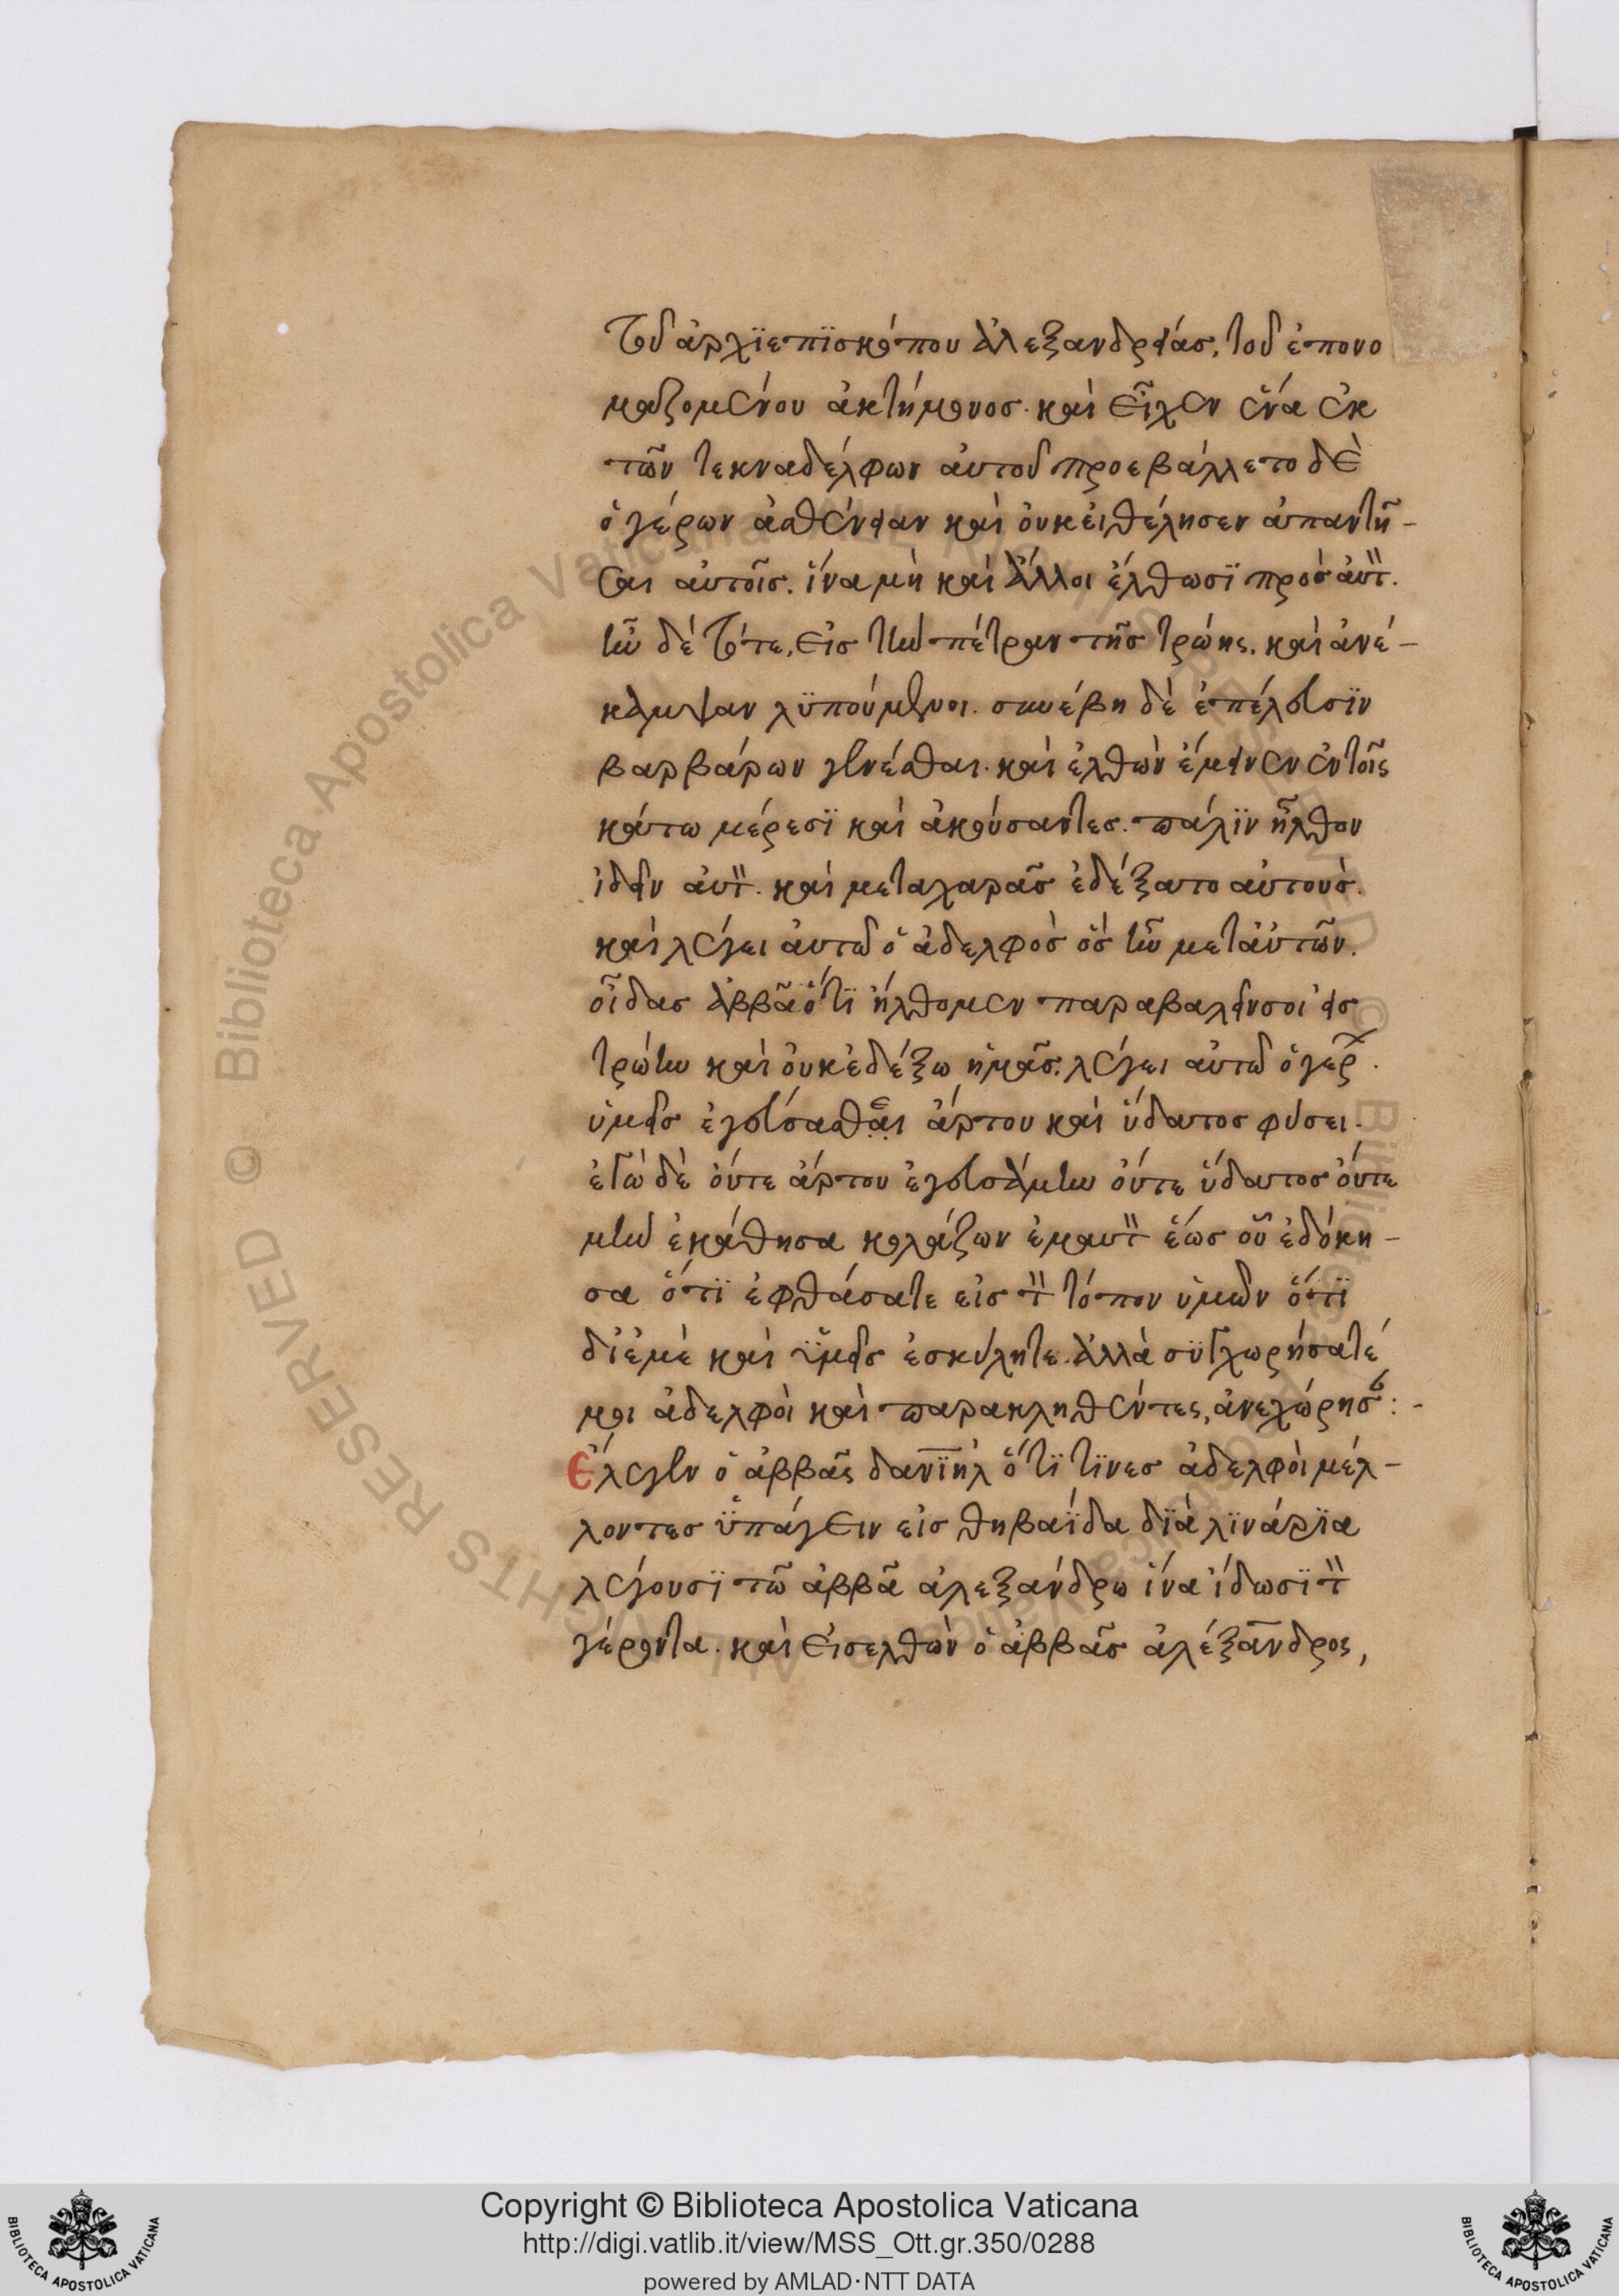 τοῦ ἀρχϊεπϊσκόπου ἀλεξανδρείας, τοῦ ἐπονο
μαζομένου ἀκτήμονος. καὶ εἶχεν ἕνα ἐκ
τῶν τεκναδέλφων αὐτοῦ προεβάλλετο δὲ
ὁ γέρων ἀσθένειαν καὶ οὐκ εἰθέλησεν ἀπαντῆ-
σαι αὐτοῖς. ἵνα μὴ καὶ ἄλλοι ἔλθωσϊ πρὸς αὐτ.
ἦν δὲ τότε, εἰς τὴν πέτραν τῆς τρώης. καὶ ἀνέ-
καμψαν λϋπούμενοι. συνέβη δὲ ἐπέλευσϊν
βαρβάρων γενέσθαι. καὶ ἐλθὼν ἔμεινεν ἐν τοῖς
κάτω μέρεσϊ καὶ ἀκούσαντες. πάλϊν ἦλθον
ἰδεῖν αὐτ. καὶ μετα χαρᾶς ἐδέξατο αὐτοὺς.
καὶ λέγει αὐτῶ ὁ ἀδελφὸς ὃς ἦν μετ' αὐτῶν.
οἶδας ἀββᾶ ὅτϊ ἤλθομεν παραβαλεῖν σοι εἰς
τρώην καὶ οὐκ ἐδέξω ἡμᾶς. λέγει αὐτῶ ὁ γερ.
ὑμεῖς ἐγεύσασθαι ἄρτου καὶ ὕδατος φύσει.
ἐγὼ δὲ οὔτε ἄρτου ἐγευσάμην οὔτε ὕδατος οὔτε
μὴν ἐκάθησα κολάζων ἐμαυτ ἕως οὗ ἐδόκη-
σα ὅτϊ ἐφθάσατε εἰς τ τόπον ὑμῶν ὅτϊ
δι' ἐμὲ καὶ ϋμεῖς ἐσκύλητε. ἀλλὰ σϋγχωρήσατέ
μοι ἀδελφοὶ καὶ παρακληθέντες, ἀνεχώρησ:-
ἔλεγεν ὁ ἀββᾶς δανϊὴλ ὅτϊ τϊνες ἀδελφοὶ μέλ-
λοντες ϋπάγειν εἰς θηβαΐδα δϊὰ λϊνάρϊα
λέγουσϊ τῶ ἀββᾶ ἀλεξάνδρω ἵνα ἴδωσϊ τ
γέροντα. καὶ εἰσελθὼν ὁ ἀββᾶς ἀλέξανδρος,
Copyright © Biblioteca Apostolica Vaticana
http://digi.vatlib.it/view/MSS_Ott.gr.350/0288
powered by AMLAD·NTT DATA